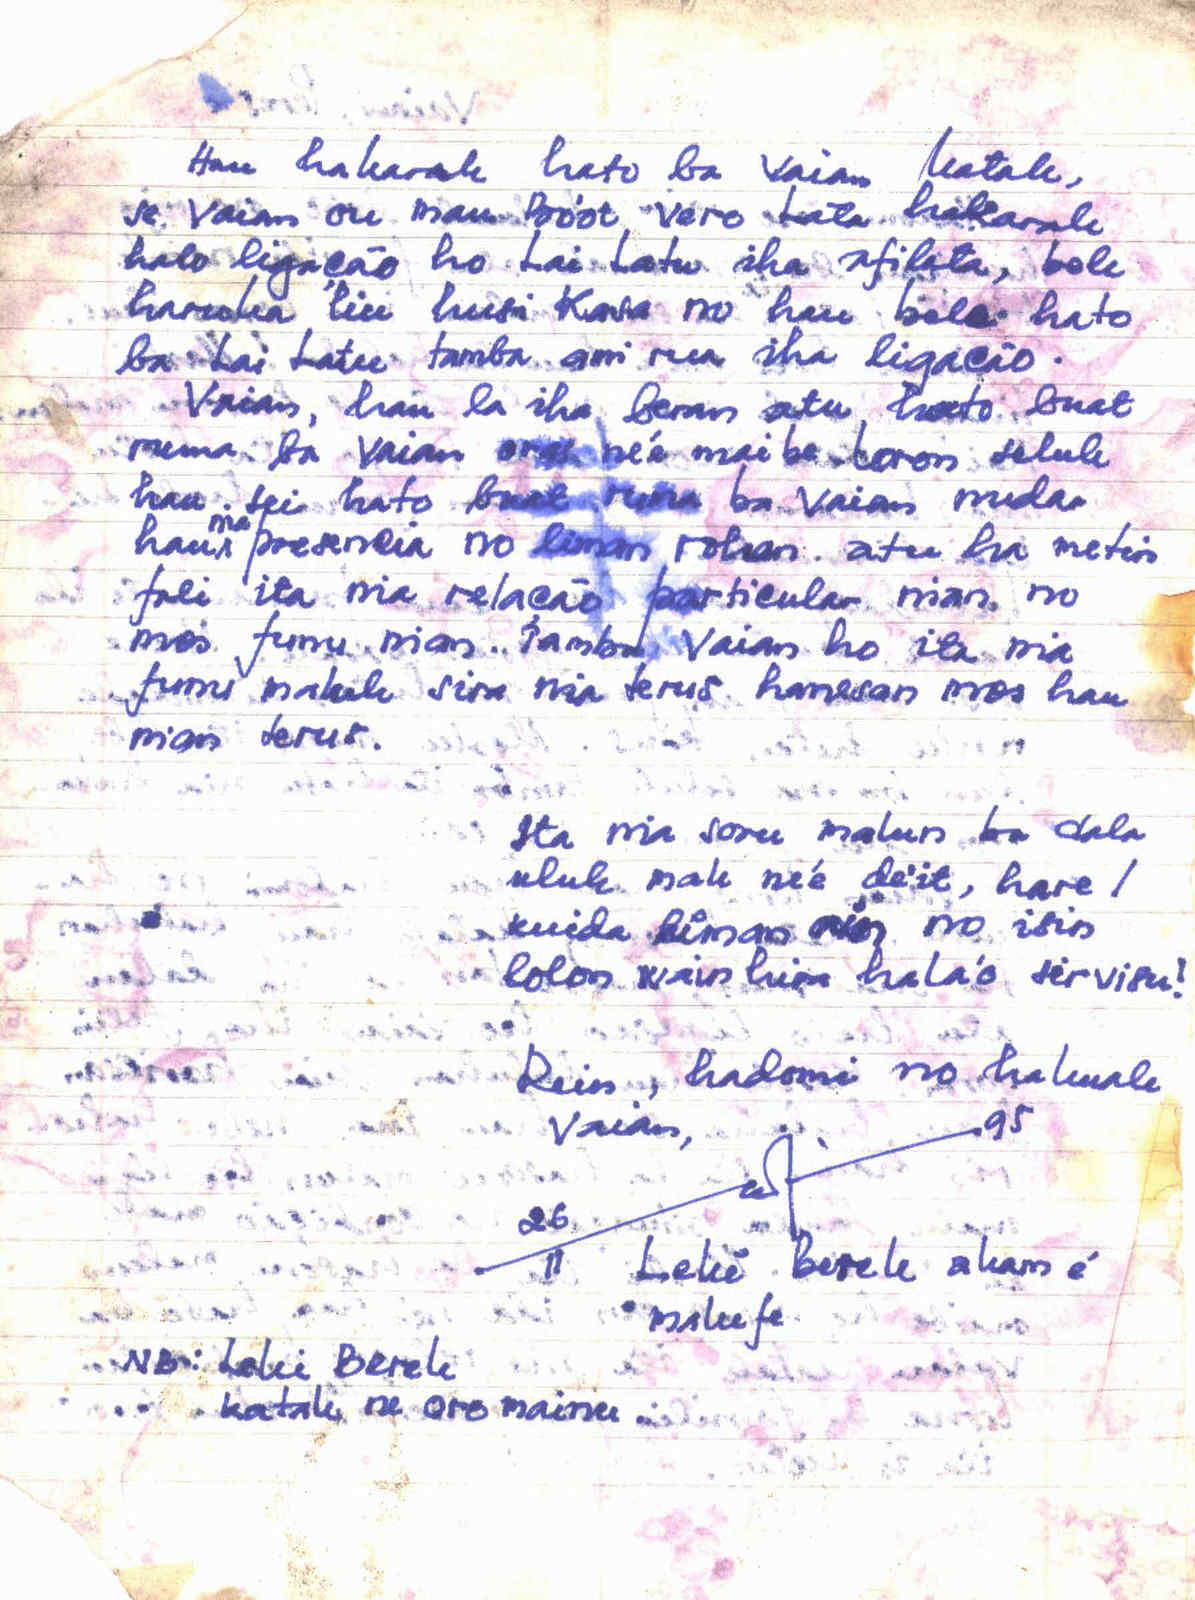 Hau hakarak hato ba Vaian katak,
se Vaian ou mau Bo'ot Vero Lata hakarak
halo ligação ho Lai Latu iha afileta, bele
haruka liu husi Kasa no hau bele hato
ba Lai Latu tamba ami rua iha ligação.
Vaian, hau la iha beran atu hato buat
ruma ba Vaian oras ne'e maibe loron seluk
hau sei hato buat ruma ba Vaian nudar
hau nia presencia no liman rohan atu ha metin
fali ita nia relação particular nian no
mos funu nian. Tamba Vaian ho ita nia
funu maluk sira nia terus hanesan mos hau
nian terus.
Ita nia soru malun ba dala
uluk mak ne'e de'it, hare/
kuida liman no isin
lolon wainhira hala'o servisu!
Rein, hadomi no hakuak
Vaian,
95
26
11
Leki Berek alian é
makufe
NB: Leki Berek
katak ne Oro mainu.